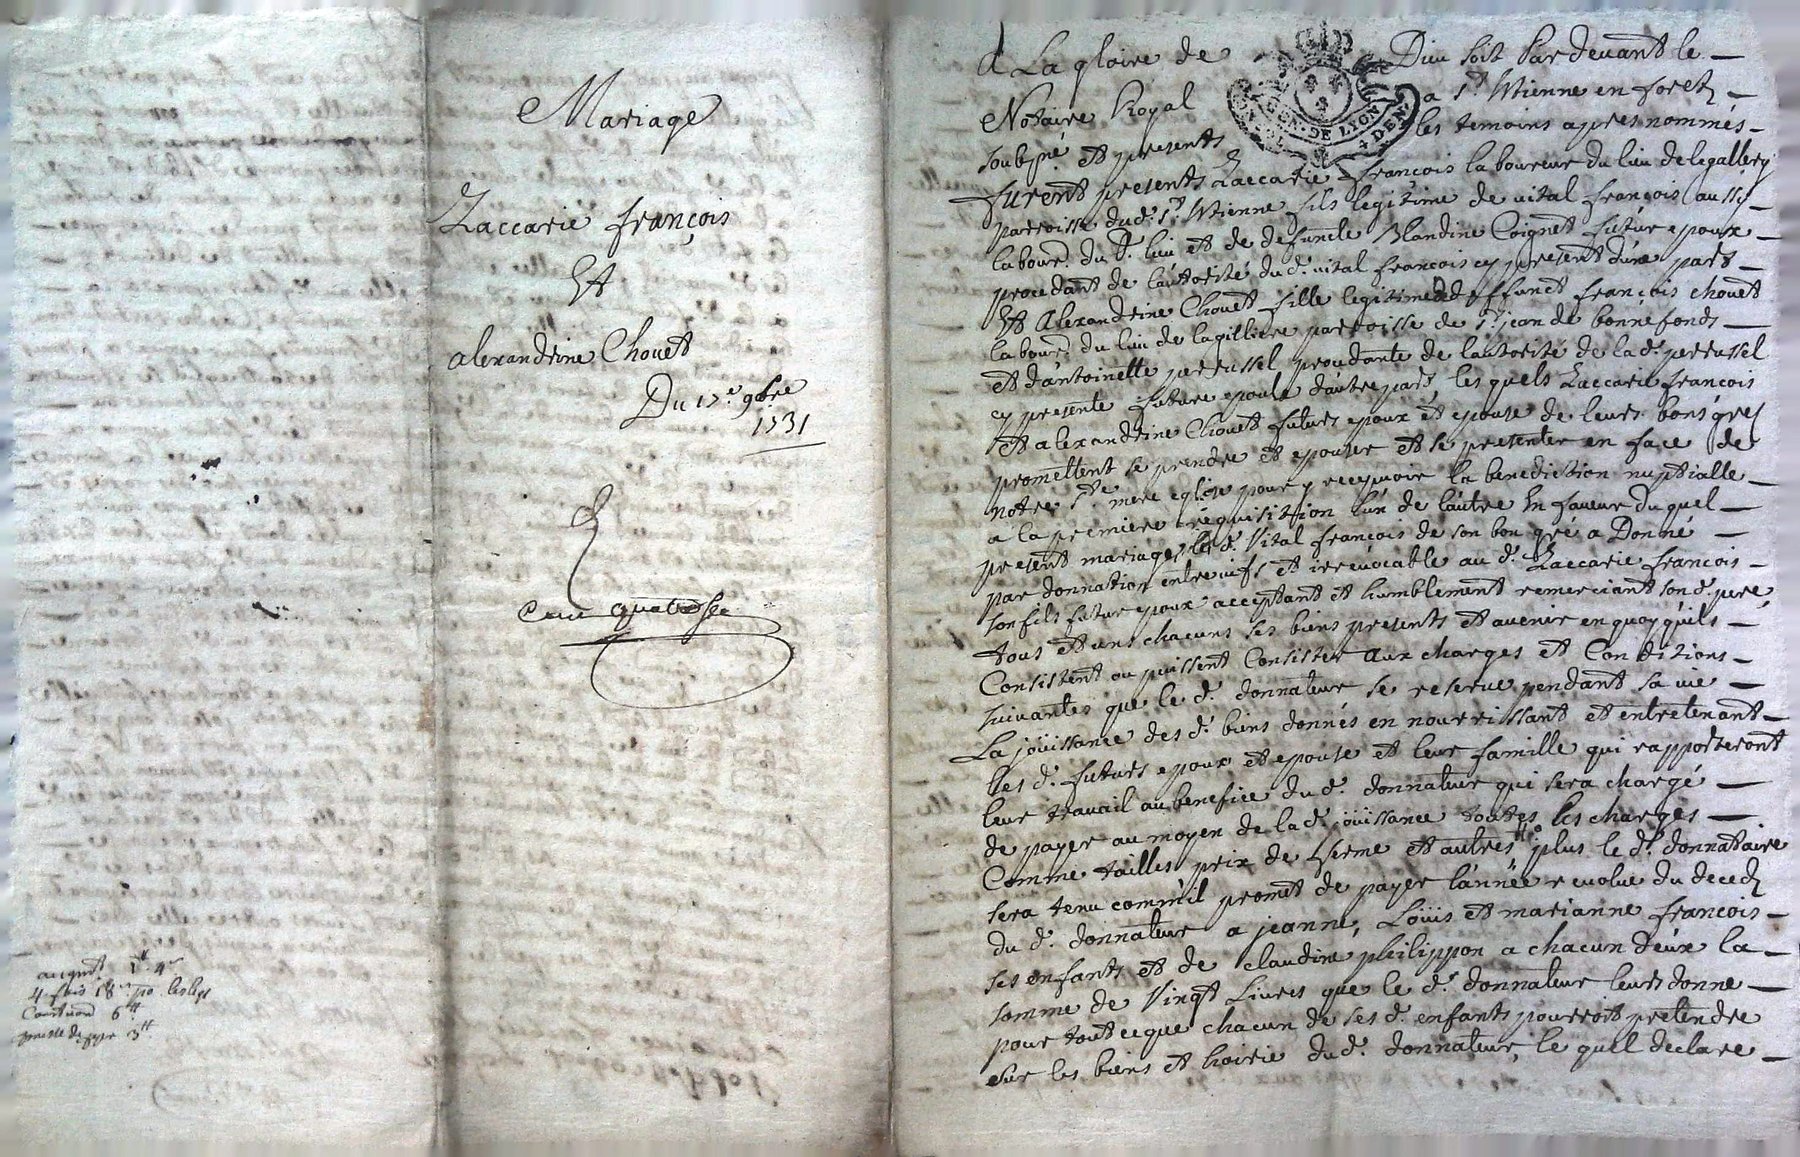 Mariage
Zaccarie françois
Et
alexandrine Chouet
Du 17e 9bre
1731
Cent quatorse
4 fois
6 ₶
3 ₶
A La gloire de Dieu soit Pardevant le
Notaire Royal a St Etienne en foretz
soubsne et presents les temoins apres nommés
furent presents Zaccarie françois laboureur du lieu de legallery
parroisse dud. St Etienne fils legitime de vital françois aussy
labour. du d. lieu et de defuncte Blandine Coignet futur epoux
procedant de l'autorité dud. vital françois cy present d'une part
Et Alexandrine Chouet fille legitime de deffunct françois chouet
labour. du lieu de lagilliere parroisse de St jean de bonnefonds
et d'antoinette perrussel procedante de l'autorité de lad. perrussel
cy presente future epouse d'autre part les quels Zaccarie francois
et alexandrine Chouet futurs epoux et epouse de leurs bons grez
promettent se prendre et epouser et se presenter en face de
notre Ste mere eglise pour y recepvoir la benediction nuptialle
a la premiere requisition l'un de l'autre En faveur du quel
present mariage led. Vital françois de son bon gré a Donné
par donnation entre vifs et irrevocable au d. Zaccarie francois
son fils futur epoux acceptant et humblement remerciant sond. pere
tous et uns chacuns ses biens presents et avenir en quoy qu'ils
Consistent ou puissent Consister aux charges et Conditions
suivantes que le d. donnateur se reserve pendant sa vie
La joüissance des d. biens donnés en nourrissant et entretenant
les d. futurs epoux et epouse et leur famille qui rapporteront
leur travail au benefice du d. donnateur qui sera chargé
de payer au moyen de la d. joüissance toutes les charges
Comme tailles prix de ferme et autres plus le d. donnataire
sera tenu comm'il promet de payer l'année revolue du decedz
du d. donnateur a jeanne, Loüis et marianne francois
ses enfants et de claudine philippon a chacun d'eux la
somme de Vingt Livres que le d. donnateur leurs donne
pour tout ce que chacun de ses d. enfants pourroit pretendre
sur les biens et hoirie dud. donnateur, le quel declare
GEN. DE LYON